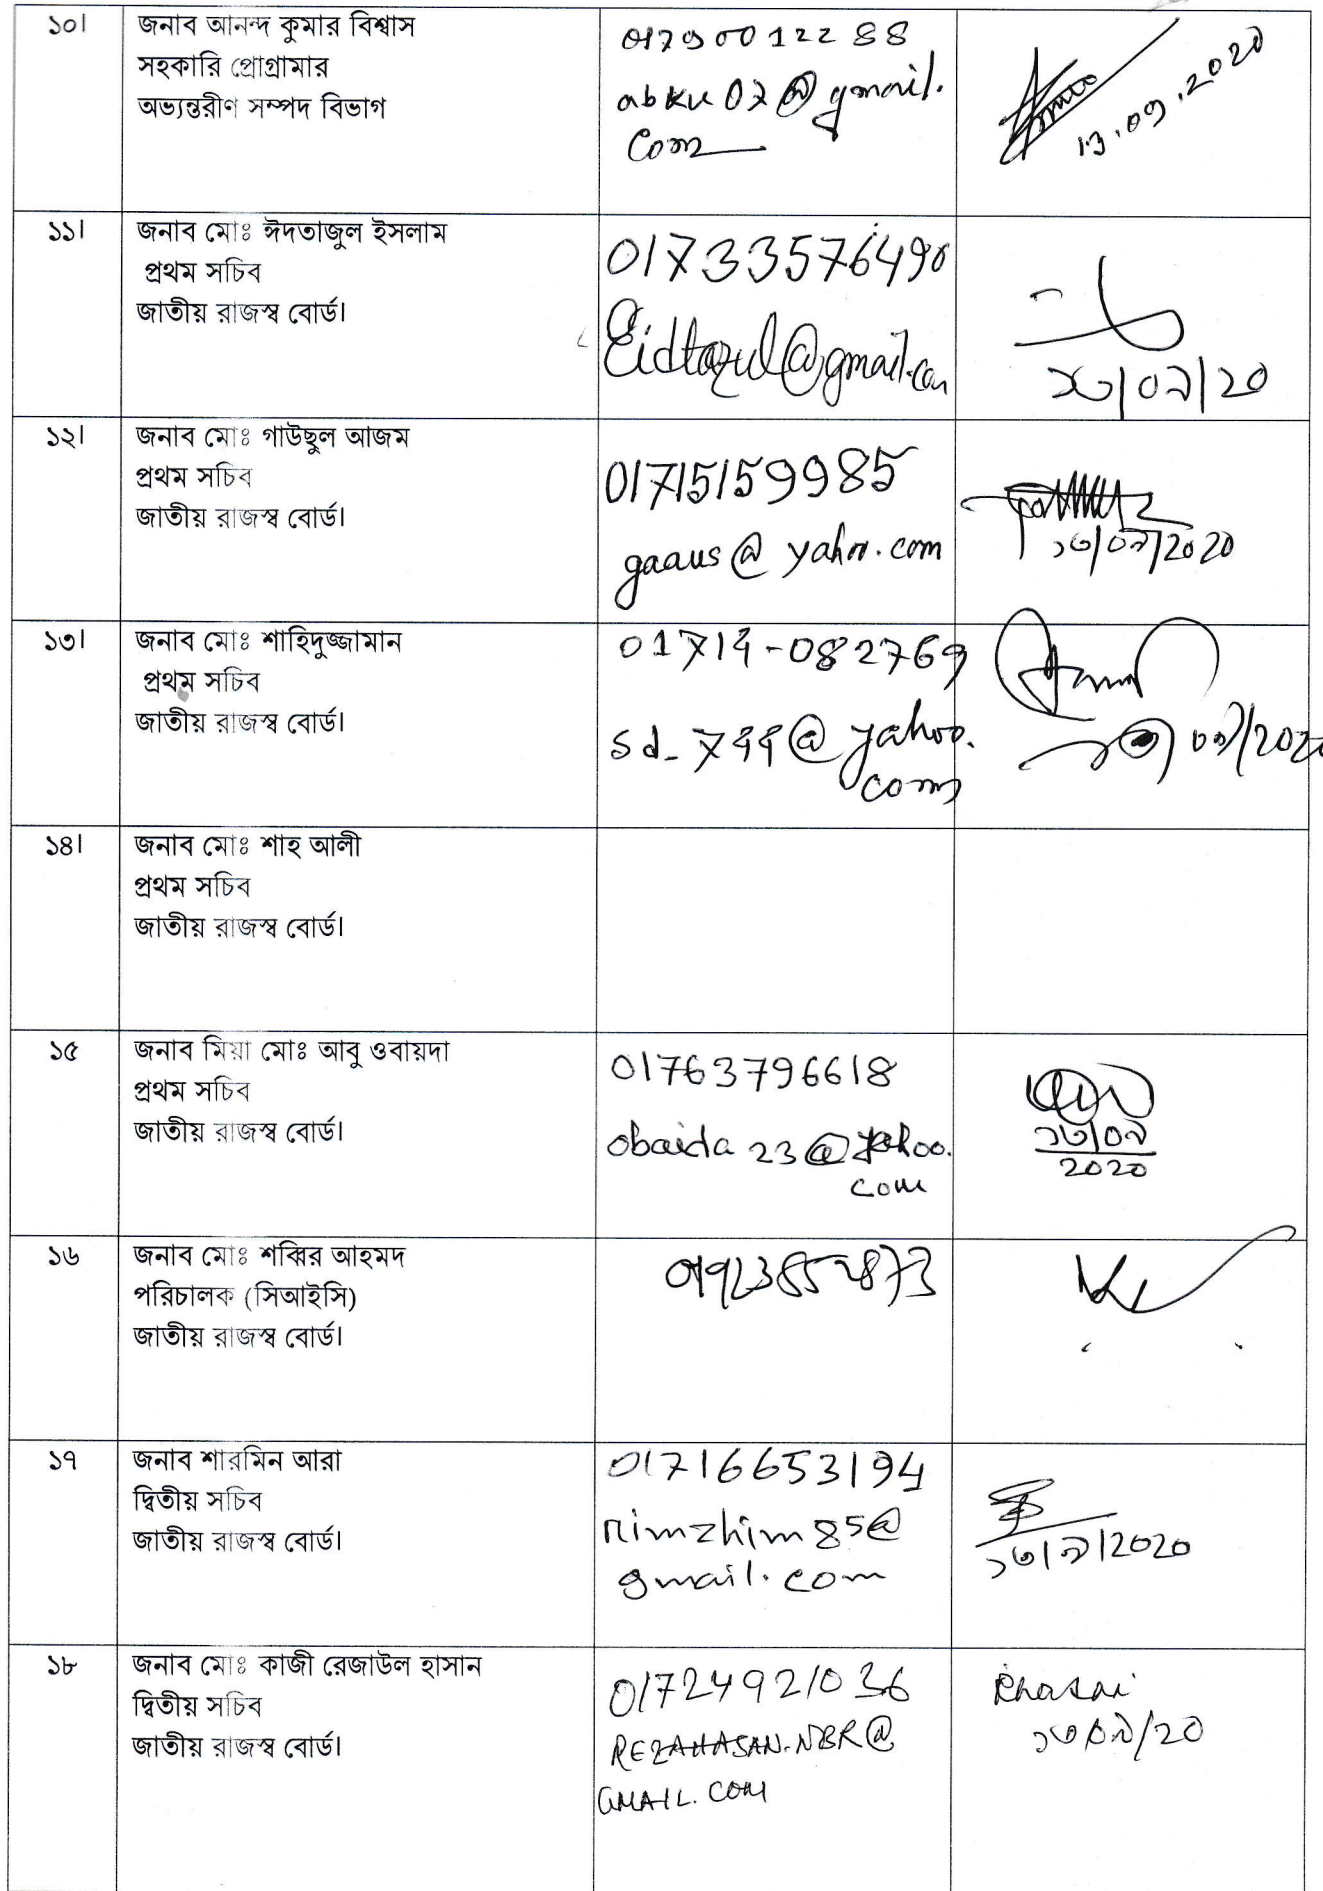 ১০। জনাব আনন্দ কুমার বিশ্বাস
সহকারি প্রোগ্রামার
অভ্যন্তরীণ সম্পদ বিভাগ
abku07@gmail.
com
13.09.2020
১১। জনাব মোঃ ঈদতাজুল ইসলাম
প্রথম সচিব
জাতীয় রাজস্ব বোর্ড।
01733576490
Eidtazul@gmail.com
১৩/০৯/20
১২। জনাব মোঃ গাউছুল আজম
প্রথম সচিব
জাতীয় রাজস্ব বোর্ড।
01715159985
gaaus@yahoo.com
১৩/০৯/2020
১৩। জনাব মোঃ শাহিদুজ্জামান
প্রথম সচিব
জাতীয় রাজস্ব বোর্ড।
01714-082769
sd_744@yahoo.
com
১৩/০৯/2020
১৪। জনাব মোঃ শাহ আলী
প্রথম সচিব
জাতীয় রাজস্ব বোর্ড।
১৫ জনাব মিয়া মোঃ আবু ওবায়দা
প্রথম সচিব
জাতীয় রাজস্ব বোর্ড।
01763796618
obaida23@yahoo.
com
১৩/০৯
2020
১৬ জনাব মোঃ শব্বির আহমদ
পরিচালক (সিআইসি)
জাতীয় রাজস্ব বোর্ড।
১৭ জনাব শারমিন আরা
দ্বিতীয় সচিব
জাতীয় রাজস্ব বোর্ড।
01716653194
rimzhim85@
gmail.com
১৩/৯/2020
১৮ জনাব মোঃ কাজী রেজাউল হাসান
দ্বিতীয় সচিব
জাতীয় রাজস্ব বোর্ড।
01724921036
REZAHASAN.NBR@
GMAIL.COM
১৩/০৯/20